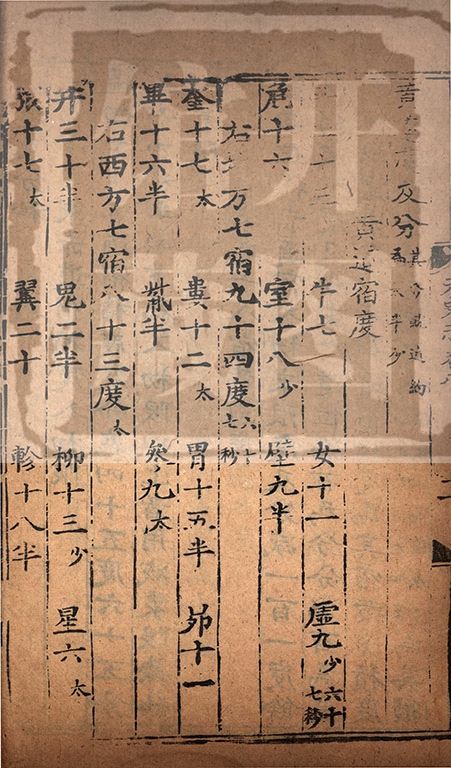 及分其分就近約爲太半少
黄道宿度
十三 牛七 女十一 虛九少六十七秒
危十六 室十八少 壁九半
右北方七宿九十四度六十七秒
奎十七太 婁十二太 胃十五半 昴十一
畢十六半 觜半 參九太
右西方七宿八十三度太
井三十半 鬼二半 柳十三少 星六太
張十七太 翼二十 軫十八半